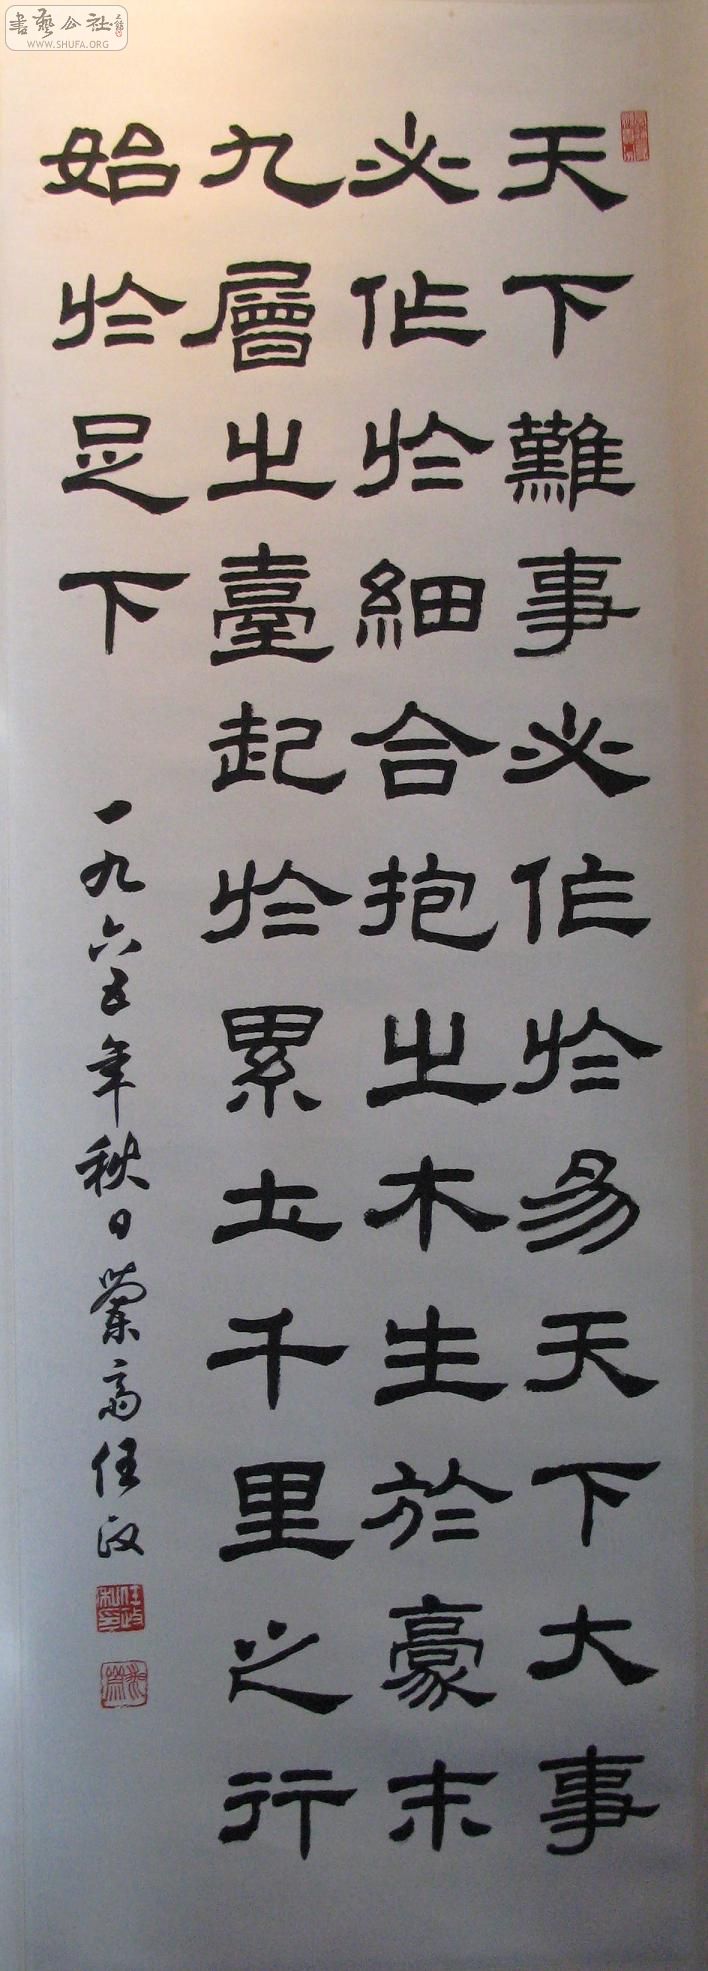 天下難事必作於易天下大事
必作於細合抱之木生於豪末
九層之臺起於累土千里之行
始於足下
一九六五年秋日蘭齋任政
書藝公社
WWW.SHUFA.ORG